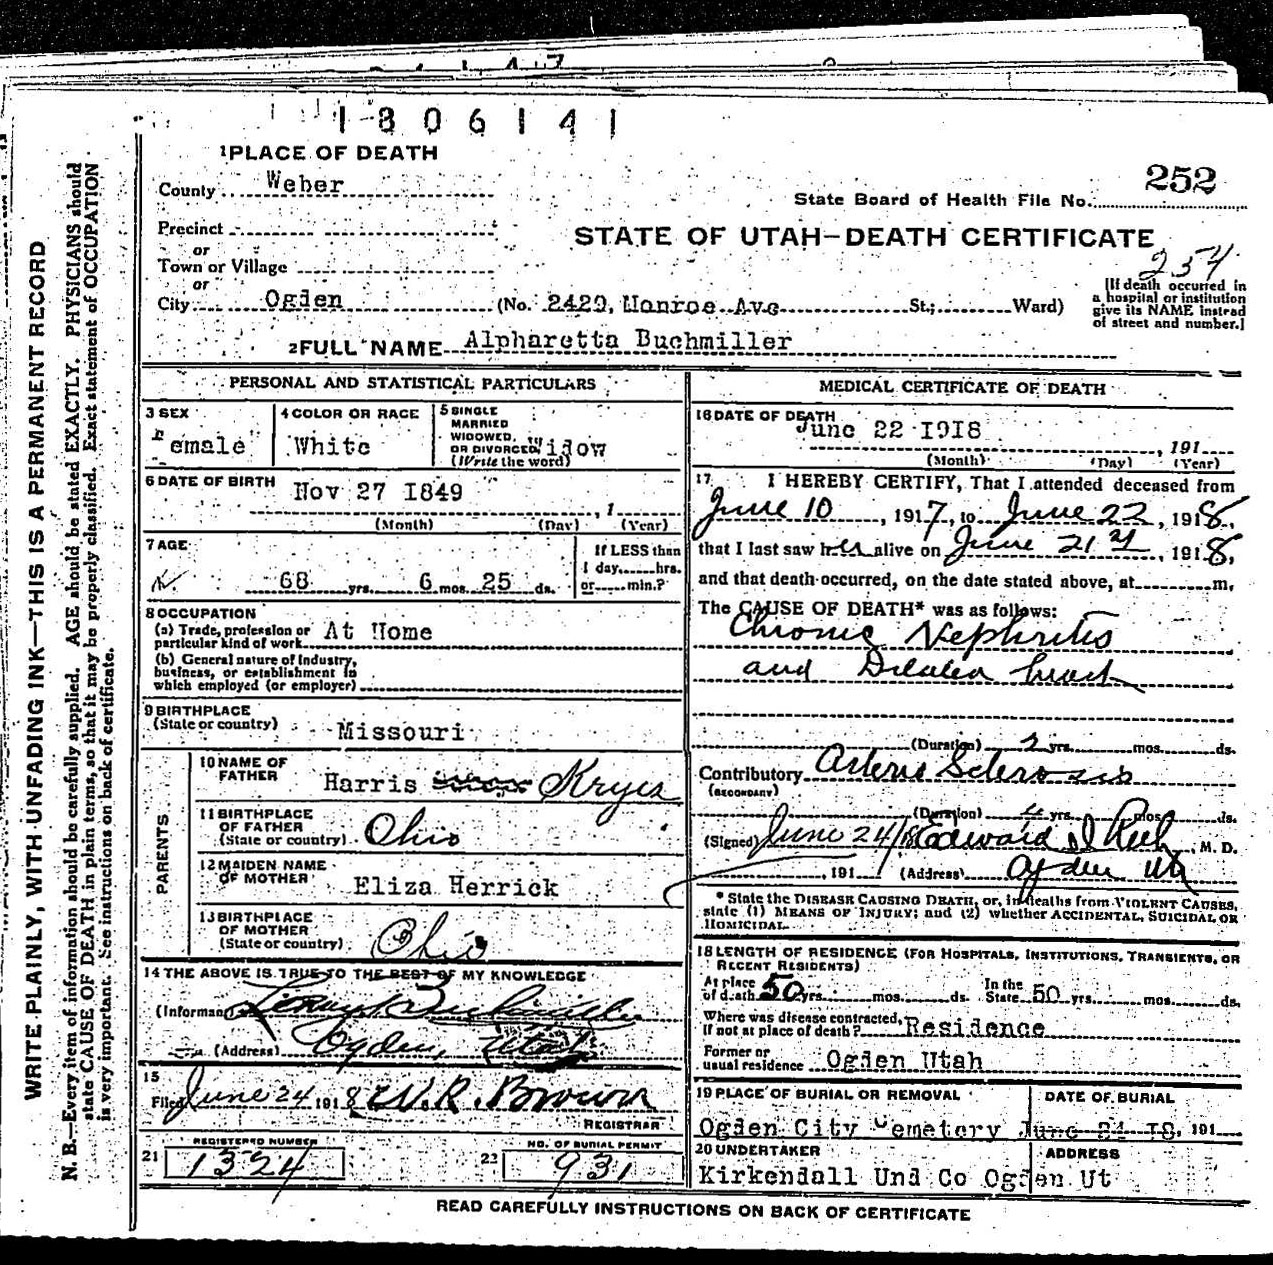 1806141
1 PLACE OF DEATH
County Weber
252
State Board of Health File No.
Precinct
STATE OF UTAH—DEATH CERTIFICATE
or
Town or Village
254
or
City Ogden (No. 2429, Monroe Ave St.; Ward)
[If death occurred in
a hospital or institution
give its NAME instead
of street and number.]
2 FULL NAME Alpharetta Buchmiller
WRITE PLAINLY, WITH UNFADING INK—THIS IS A PERMANENT RECORD
N. B.—Every item of information should be carefully supplied. AGE should be stated EXACTLY. PHYSICIANS should
state CAUSE OF DEATH in plain terms, so that it may be properly classified. Exact statement of OCCUPATION
is very important. See instructions on back of certificate.
PERSONAL AND STATISTICAL PARTICULARS
3 SEX
Female
4 COLOR OR RACE
White
5 SINGLE
MARRIED
WIDOWED,
OR DIVORCED
(Write the word)
Widow
6 DATE OF BIRTH
Nov 27 1849 , 1
(Month) (Day) (Year)
7 AGE
68 yrs. 6 mos. 25 ds.
If LESS than
1 day, hrs.
or min.?
8 OCCUPATION
(a) Trade, profession or
particular kind of work At Home
(b) General nature of Industry,
business, or establishment in
which employed (or employer)
9 BIRTHPLACE
(State or country) Missouri
PARENTS
10 NAME OF
FATHER Harris Kryer
11 BIRTHPLACE
OF FATHER
(State or country) Ohio
12 MAIDEN NAME
OF MOTHER Eliza Herrick
13 BIRTHPLACE
OF MOTHER
(State or country) Ohio
14 THE ABOVE IS TRUE TO THE BEST OF MY KNOWLEDGE
(Informant) Buchmiller
(Address) Ogden, Utah
15
Filed June 24 1918 W. R. Brown
REGISTRAR
REGISTERED NUMBER
21 1324
NO. OF BURIAL PERMIT
22 931
MEDICAL CERTIFICATE OF DEATH
16 DATE OF DEATH
June 22 1918 , 191
(Month) (Day) (Year)
17 I HEREBY CERTIFY, That I attended deceased from
June 10, 1917, to June 22, 1918,
that I last saw her alive on June 21st, 1918,
and that death occurred, on the date stated above, at m.
The CAUSE OF DEATH* was as follows:
Chronic Nephritis
and Dilated heart
(Duration) 2 yrs. mos. ds.
Contributory Arterio Sclerosis
(SECONDARY)
(Duration) yrs. mos. ds.
(Signed) June 24/18 Edward I Rich, M. D.
, 191 (Address) Ogden Ut
* State the DISEASE CAUSING DEATH, or, in deaths from VIOLENT CAUSES,
state (1) MEANS OF INJURY; and (2) whether ACCIDENTAL, SUICIDAL OR
HOMICIDAL.
18 LENGTH OF RESIDENCE (FOR HOSPITALS, INSTITUTIONS, TRANSIENTS, OR
RECENT RESIDENTS)
At place
of death 50 yrs. mos. ds.
In the
State 50 yrs. mos. ds.
Where was disease contracted,
If not at place of death? Residence
Former or
usual residence Ogden Utah
19 PLACE OF BURIAL OR REMOVAL
Ogden City Cemetery
DATE OF BURIAL
June 24 18, 191
20 UNDERTAKER
Kirkendall Und Co
ADDRESS
Ogden Ut
READ CAREFULLY INSTRUCTIONS ON BACK OF CERTIFICATE